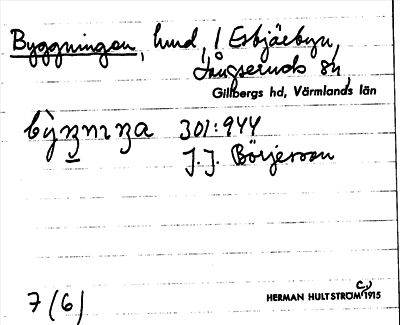 Byggningen, hmd, i Esbjäebyn,
Långseruds sn,
Gillbergs hd, Värmlands län
301:944
J. J. Börjesson
7 (6)
HERMAN HULTSTRÖM 1915